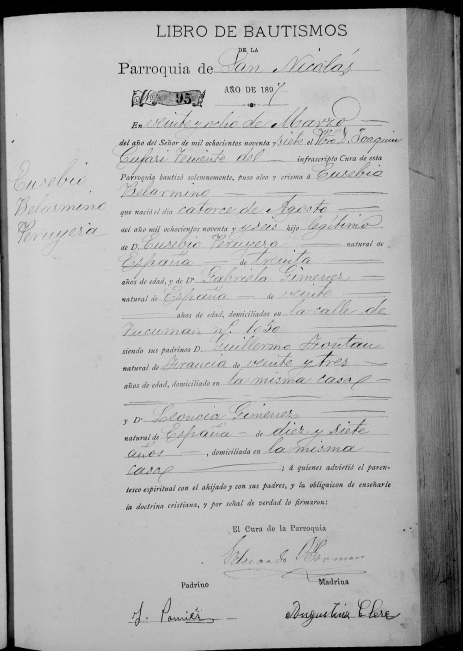 LIBRO DE BAUTISMOS
DE LA
Parroquia de San Nicolás
95
AÑO DE 1897
En veinte y ocho de Marzo
del año del Señor de mil ochocientos noventa y siete el Pbro D. Joaquin
Cufari Teniente del infrascripto Cura de esta
Parroquia bautizó solemnemente, puso oleo y crisma á Eusebio
Belarmino
que nació el dia catorce de Agosto
del año mil ochocientos noventa y seis hijo legítimo
de D. Eusebio Peruyera natural de
España de treinta
años de edad, y de Da. Gabriela Gimenez
natural de España de veinte
años de edad, domiciliados en la calle de
Tucuman nº. 1050
siendo sus padrinos D. Guillermo
natural de Francia de veinte y tres
años de edad, domiciliado en la misma casa
y Da. Leoncia Gimenez
natural de España de diez y siete
años , domiciliada en la misma
casa ; á quienes advirtió el paren-
tesco espiritual con el ahijado y con sus padres, y la obligacion de enseñarle
la doctrina cristiana, y por señal de verdad lo firmaron:
Eusebio
Belarmino
Peruyera
El Cura de la Parroquia
Padrino
Madrina